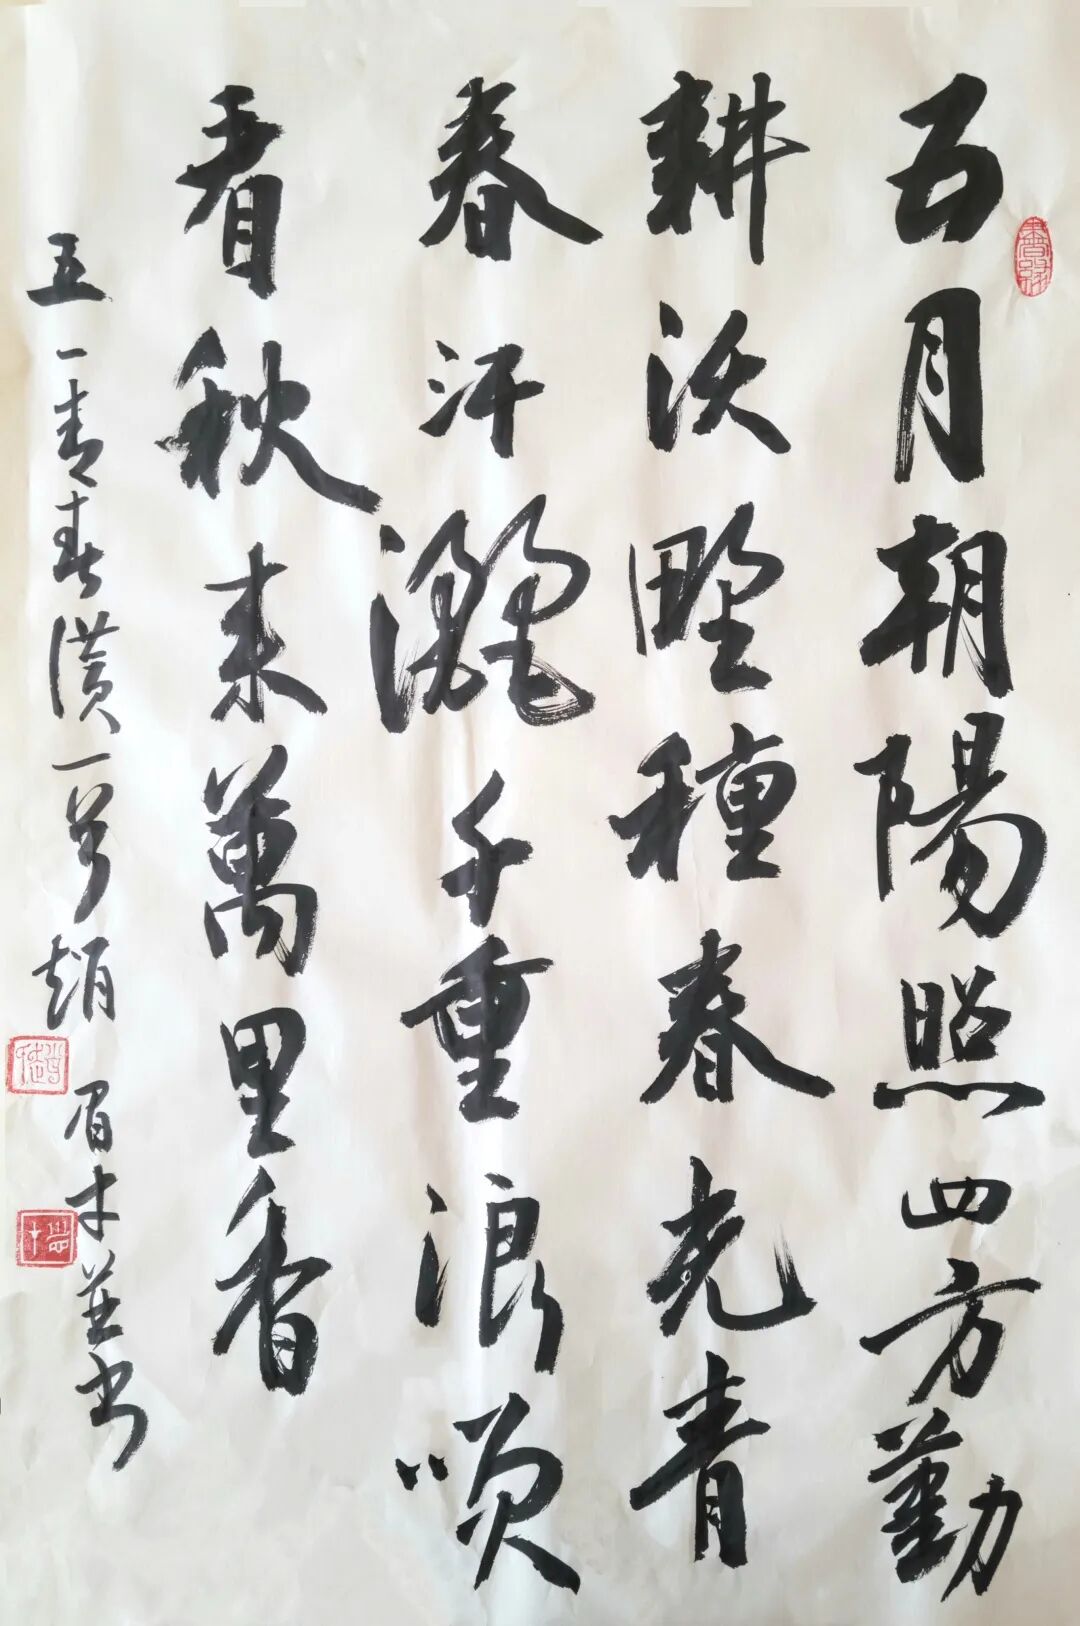 五月朝陽照四方勤
耕沃野種春光青
春汗灑千重浪笑
看秋来萬里香
五一青春讚一首 趙眉才並书